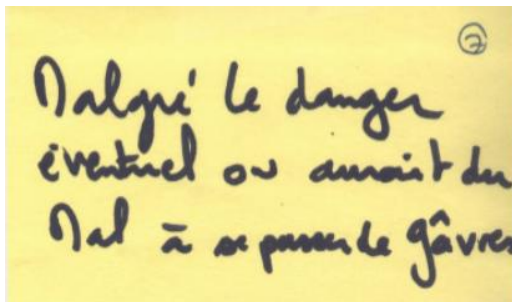 7
Malgré le danger
éventuel ou aurait du
Mal à se passer de gâvres